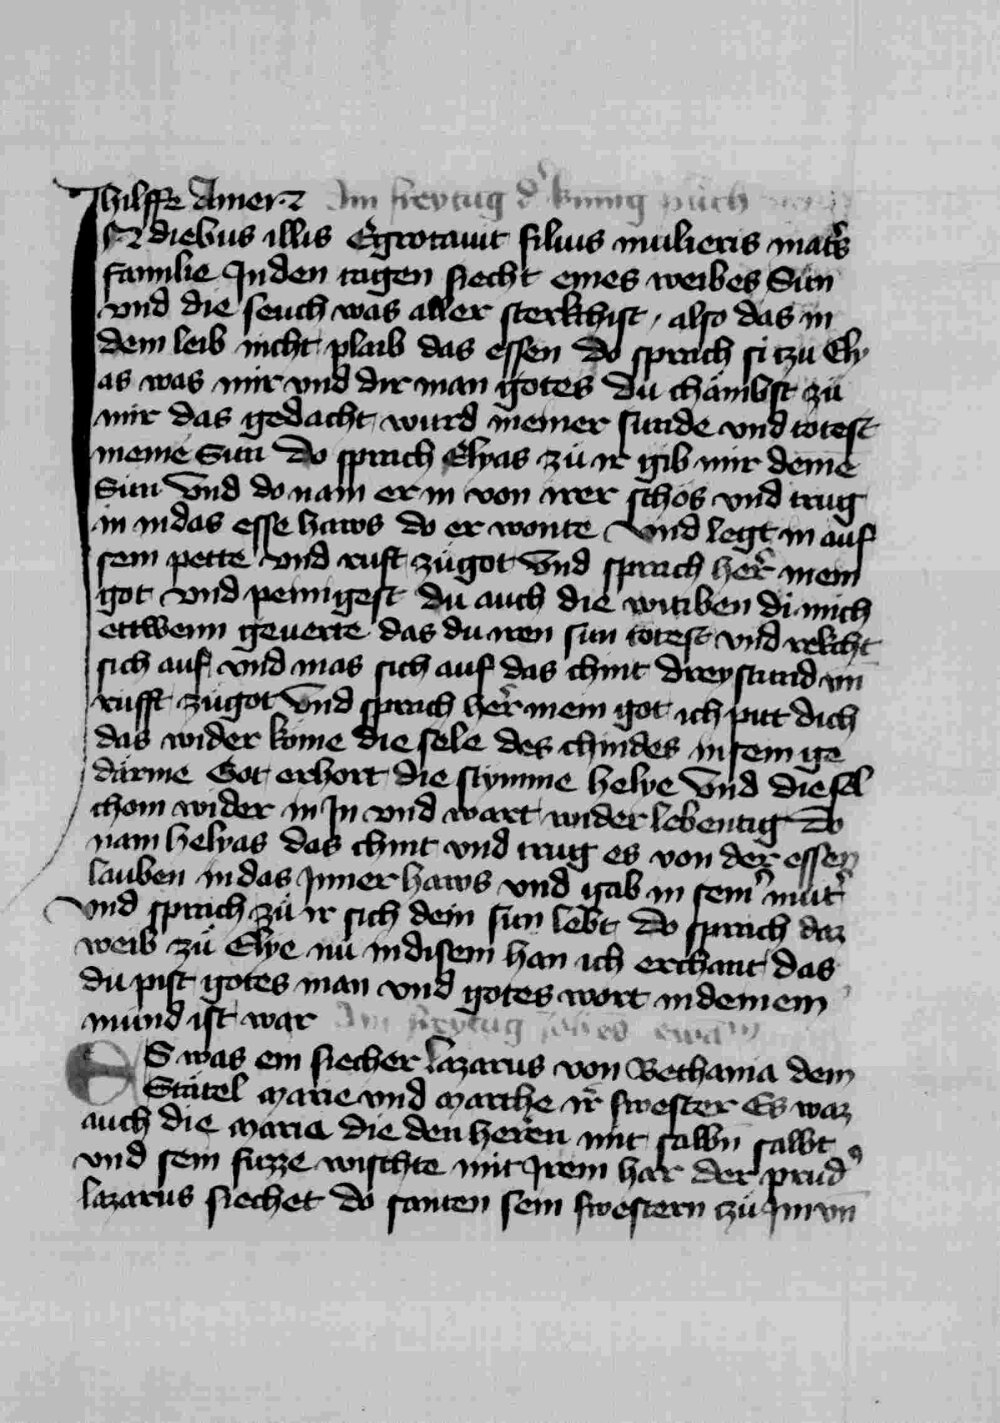 hilffe Amen Am freytag d' kunig puch
In diebus illis Egrotauit filius mulieris mat's
familie In den tagen siecht eines weibes Sun
vnd die seuch was aller sterkhist, also das in
dem leib nicht plaib das essen do sprach si tzu Ely
as was mir vnd dir man gotes du chämbst zu
mir das gedacht wurd meiner sunde vnd totest
meinē Sun Do sprach Elyas zü ir gib mir deinē
Sun Vnd do nam er in von irer schos vnd trug
in in das esse haws do er wonte Vnd legt in auf
sein pette vnd ruft zü got Vnd sprach her mein
got Vnd peinigest du auch die witiben di mich
ettwenn geuerte das du iren sun totest vnd rekcht
sich auf vnd mas sich auf das chint drey stund vn̄
rufft zü got Vnd sprach her mein got ich pitt dich
das wider kome die sele des chindes in sein ge
därme Got erhort die stymme helye Vnd die sel
chom wider in In vnd wart wider lebentig Do
nam helyas das chint vnd trug es von der essen
lauben in das Inner haws vnd gab in sein' mut'
Vnd sprach zü ir sich dein sun lebt Do sprach daz
weib zü Elye nü in disem han ich erchant das
du pist gotes man vnd gotes wort in deinem
mund ist war Am freytag
ES was ein siecher lazarus von Bethania dem
Stätel Marie vnd Marthe ir swester Es waz
auch die Maria die den heren mit salbn̄ salbt
vnd sein fuzze wischte mit Irem har der prud'
lazarus siechet do santen sein swestern tzü Im vn̄